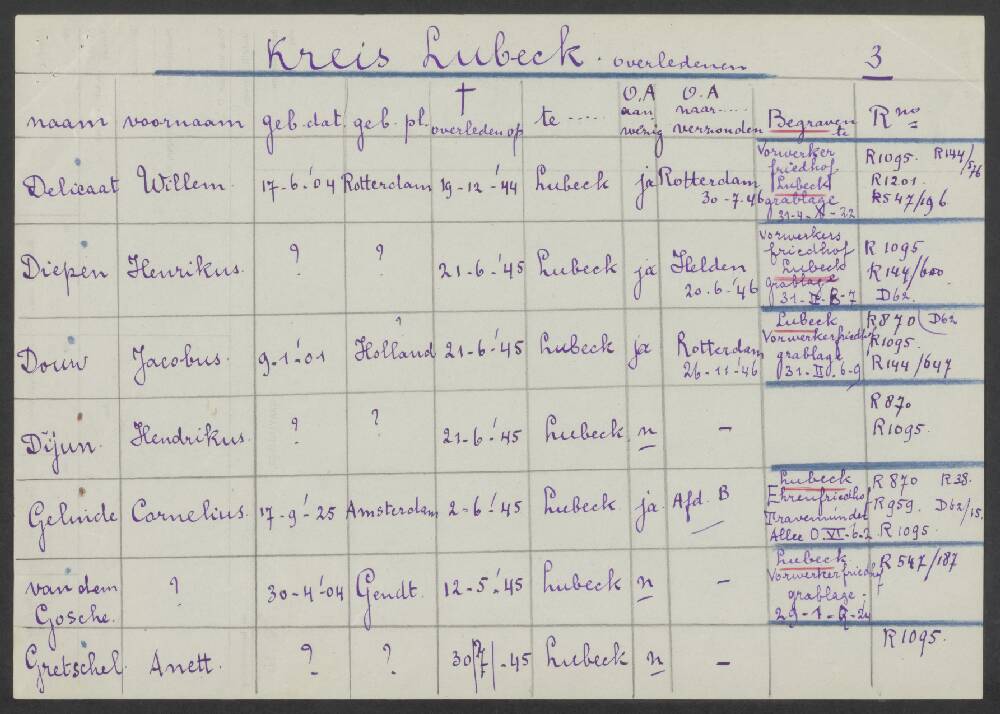 Kreis Lubeck. overledenen 3
naam voornaam geb. dat. geb. pl. † overleden op te ..... O.A aan- wezig O.A naar ..... verzonden Begraven te R no
Delicaat Willem. 17-6-'04 Rotterdam 19-12-'44 Lubeck ja Rotterdam 30-7-46
Vorwerker
friedhof
Lubeck
grablage
R1095. R144/576
R1201.
R547/196
Diepen Henrikus. ? ? 21-6-'45 Lubeck ja Helden 20-6-'46
Vorwerkers
friedhof
Lubeck
grablage
R 1095
R144/600
D62.
Douw Jacobus. 9-1-'01 Holland ? 21-6-'45 Lubeck ja Rotterdam 26-11-'46
Lubeck
Vorwerkerfriedhof
grablage
31-II-6-9
R870 D62
R1095.
R144/647
Dijun. Hendrikus. ? ? 21-6-'45 Lubeck n -
R 870
R1095.
Gelinde Cornelius. 17-9-'25 Amsterdam 2-6-'45 Lubeck. ja. Afd. B
Lubeck
Ehrenfriedhof
Travemünder
Allee O.VI-6-2
R 870 R38.
R959. D62/15.
R 1095
van dem Gosche. ? 30-4-'04 Gendt. 12-5-'45 Lubeck n -
Lubeck
Vorwerkerfriedhof
grablage-
R 547/187
Gretschel. Anett. ? ? 30/7/-45 Lubeck n -
R1095.